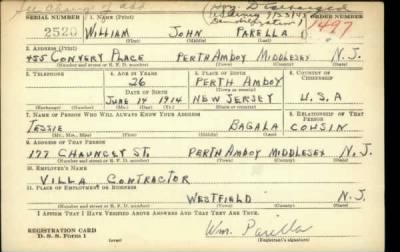 See Change of Add
SERIAL NUMBER 1. NAME (Print) ORDER NUMBER
2520 WILLIAM JOHN PARELLA 1497
(First) (Middle) (Last)
2. ADDRESS (Print)
455 CONVERY PLACE PERTH AMBOY MIDDLESEX N.J.
(Number and street or R. F. D. number) (Town) (County) (State)
3. TELEPHONE 4. AGE IN YEARS 5. PLACE OF BIRTH 6. COUNTRY OF CITIZENSHIP
26 PERTH AMBOY
DATE OF BIRTH (Town or county)
JUNE 14 1914 NEW JERSEY U.S.A
(Exchange) (Number) (Mo.) (Day) (Yr.) (State or country)
7. NAME OF PERSON WHO WILL ALWAYS KNOW YOUR ADDRESS 8. RELATIONSHIP OF THAT PERSON
JESSIE BAGALA COUSIN
(Mr., Mrs., Miss) (First) (Middle) (Last)
9. ADDRESS OF THAT PERSON
177 CHAUNCEY ST. PERTH AMBOY MIDDLESEX N.J.
(Number and street or R. F. D. number) (Town) (County) (State)
10. EMPLOYER'S NAME
VILLA CONTRACTOR
11. PLACE OF EMPLOYMENT OR BUSINESS
WESTFIELD N.J.
(Number and street or R. F. D. number) (Town) (County) (State)
I AFFIRM THAT I HAVE VERIFIED ABOVE ANSWERS AND THAT THEY ARE TRUE.
REGISTRATION CARD
D. S. S. Form 1
Wm. Parella
(Registrant's signature)